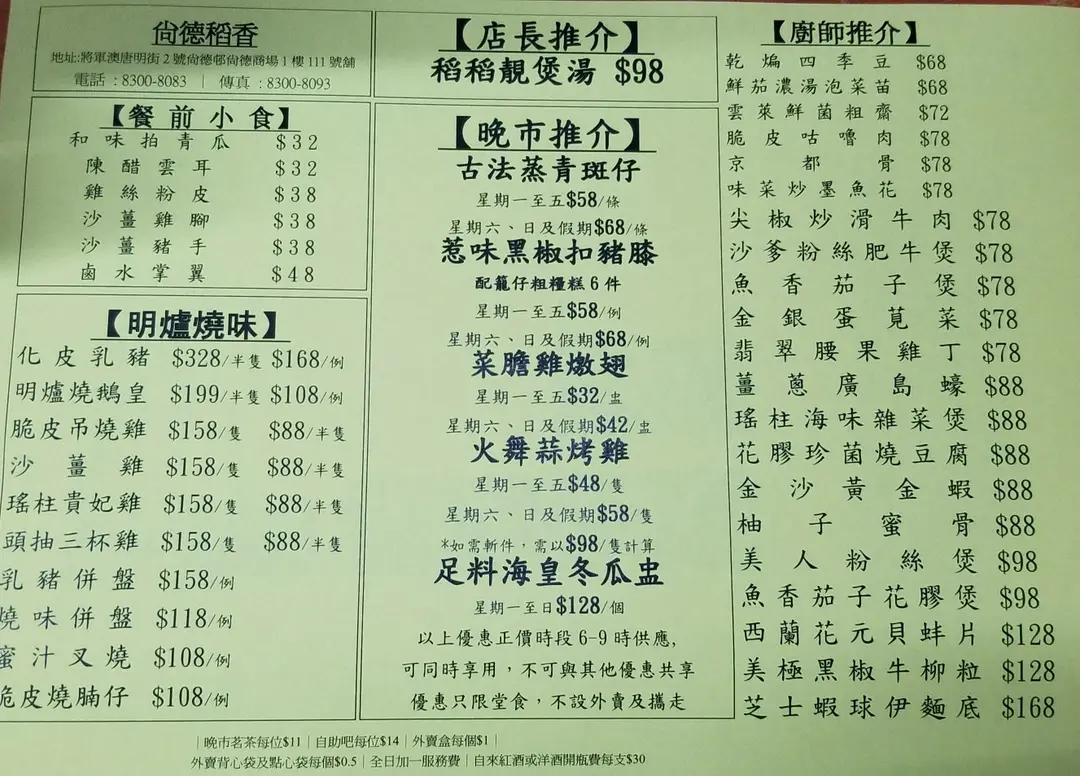 尙德稻香
地址:將軍澳唐明街 2 號尙德邨尙德商場 1 樓 111 號舖
電話 : 8300-8083 | 傳真 : 8300-8093
【餐前小食】
和味拍青瓜 $32
陳醋雲耳 $32
雞絲粉皮 $38
沙薑雞腳 $38
沙薑豬手 $38
鹵水掌翼 $48
【明爐燒味】
化皮乳豬 $328/半隻 $168/例
明爐燒鵝皇 $199/半隻 $108/例
脆皮吊燒雞 $158/隻 $88/半隻
沙薑雞 $158/隻 $88/半隻
瑤柱貴妃雞 $158/隻 $88/半隻
頭抽三杯雞 $158/隻 $88/半隻
乳豬併盤 $158/例
燒味併盤 $118/例
蜜汁叉燒 $108/例
脆皮燒腩仔 $108/例
【店長推介】
稻稻靚煲湯 $98
【晚市推介】
古法蒸青斑仔
星期一至五$58/條
星期六、日及假期$68/條
惹味黑椒扣豬膝
配籠仔粗糧糕 6 件
星期一至五$58/例
星期六、日及假期$68/例
菜膽雞燉翅
星期一至五$32/盅
星期六、日及假期$42/盅
火舞蒜烤雞
星期一至五$48/隻
星期六、日及假期$58/隻
*如需斬件，需以$98/隻計算
足料海皇冬瓜盅
星期一至日$128/個
以上優惠正價時段 6-9 時供應,
可同時享用，不可與其他優惠共享
優惠只限堂食，不設外賣及攜走
【廚師推介】
乾煸四季豆 $68
鮮茄濃湯泡菜苗 $68
雲萊鮮菌粗齋 $72
脆皮咕嚕肉 $78
京都骨 $78
味菜炒墨魚花 $78
尖椒炒滑牛肉 $78
沙爹粉絲肥牛煲 $78
魚香茄子煲 $78
金銀蛋莧菜 $78
翡翠腰果雞丁 $78
薑蔥廣島蠔 $88
瑤柱海味雜菜煲 $88
花膠珍菌燒豆腐 $88
金沙黃金蝦 $88
柚子蜜骨 $88
美人粉絲煲 $98
魚香茄子花膠煲 $98
西蘭花元貝蚌片 $128
美極黑椒牛柳粒 $128
芝士蝦球伊麵底 $168
| 晚市茗茶每位$11 | 自助吧每位$14 | 外賣盒每個$1 |
外賣背心袋及點心袋每個$0.5 | 全日加一服務費 | 自來紅酒或洋酒開瓶費每支$30